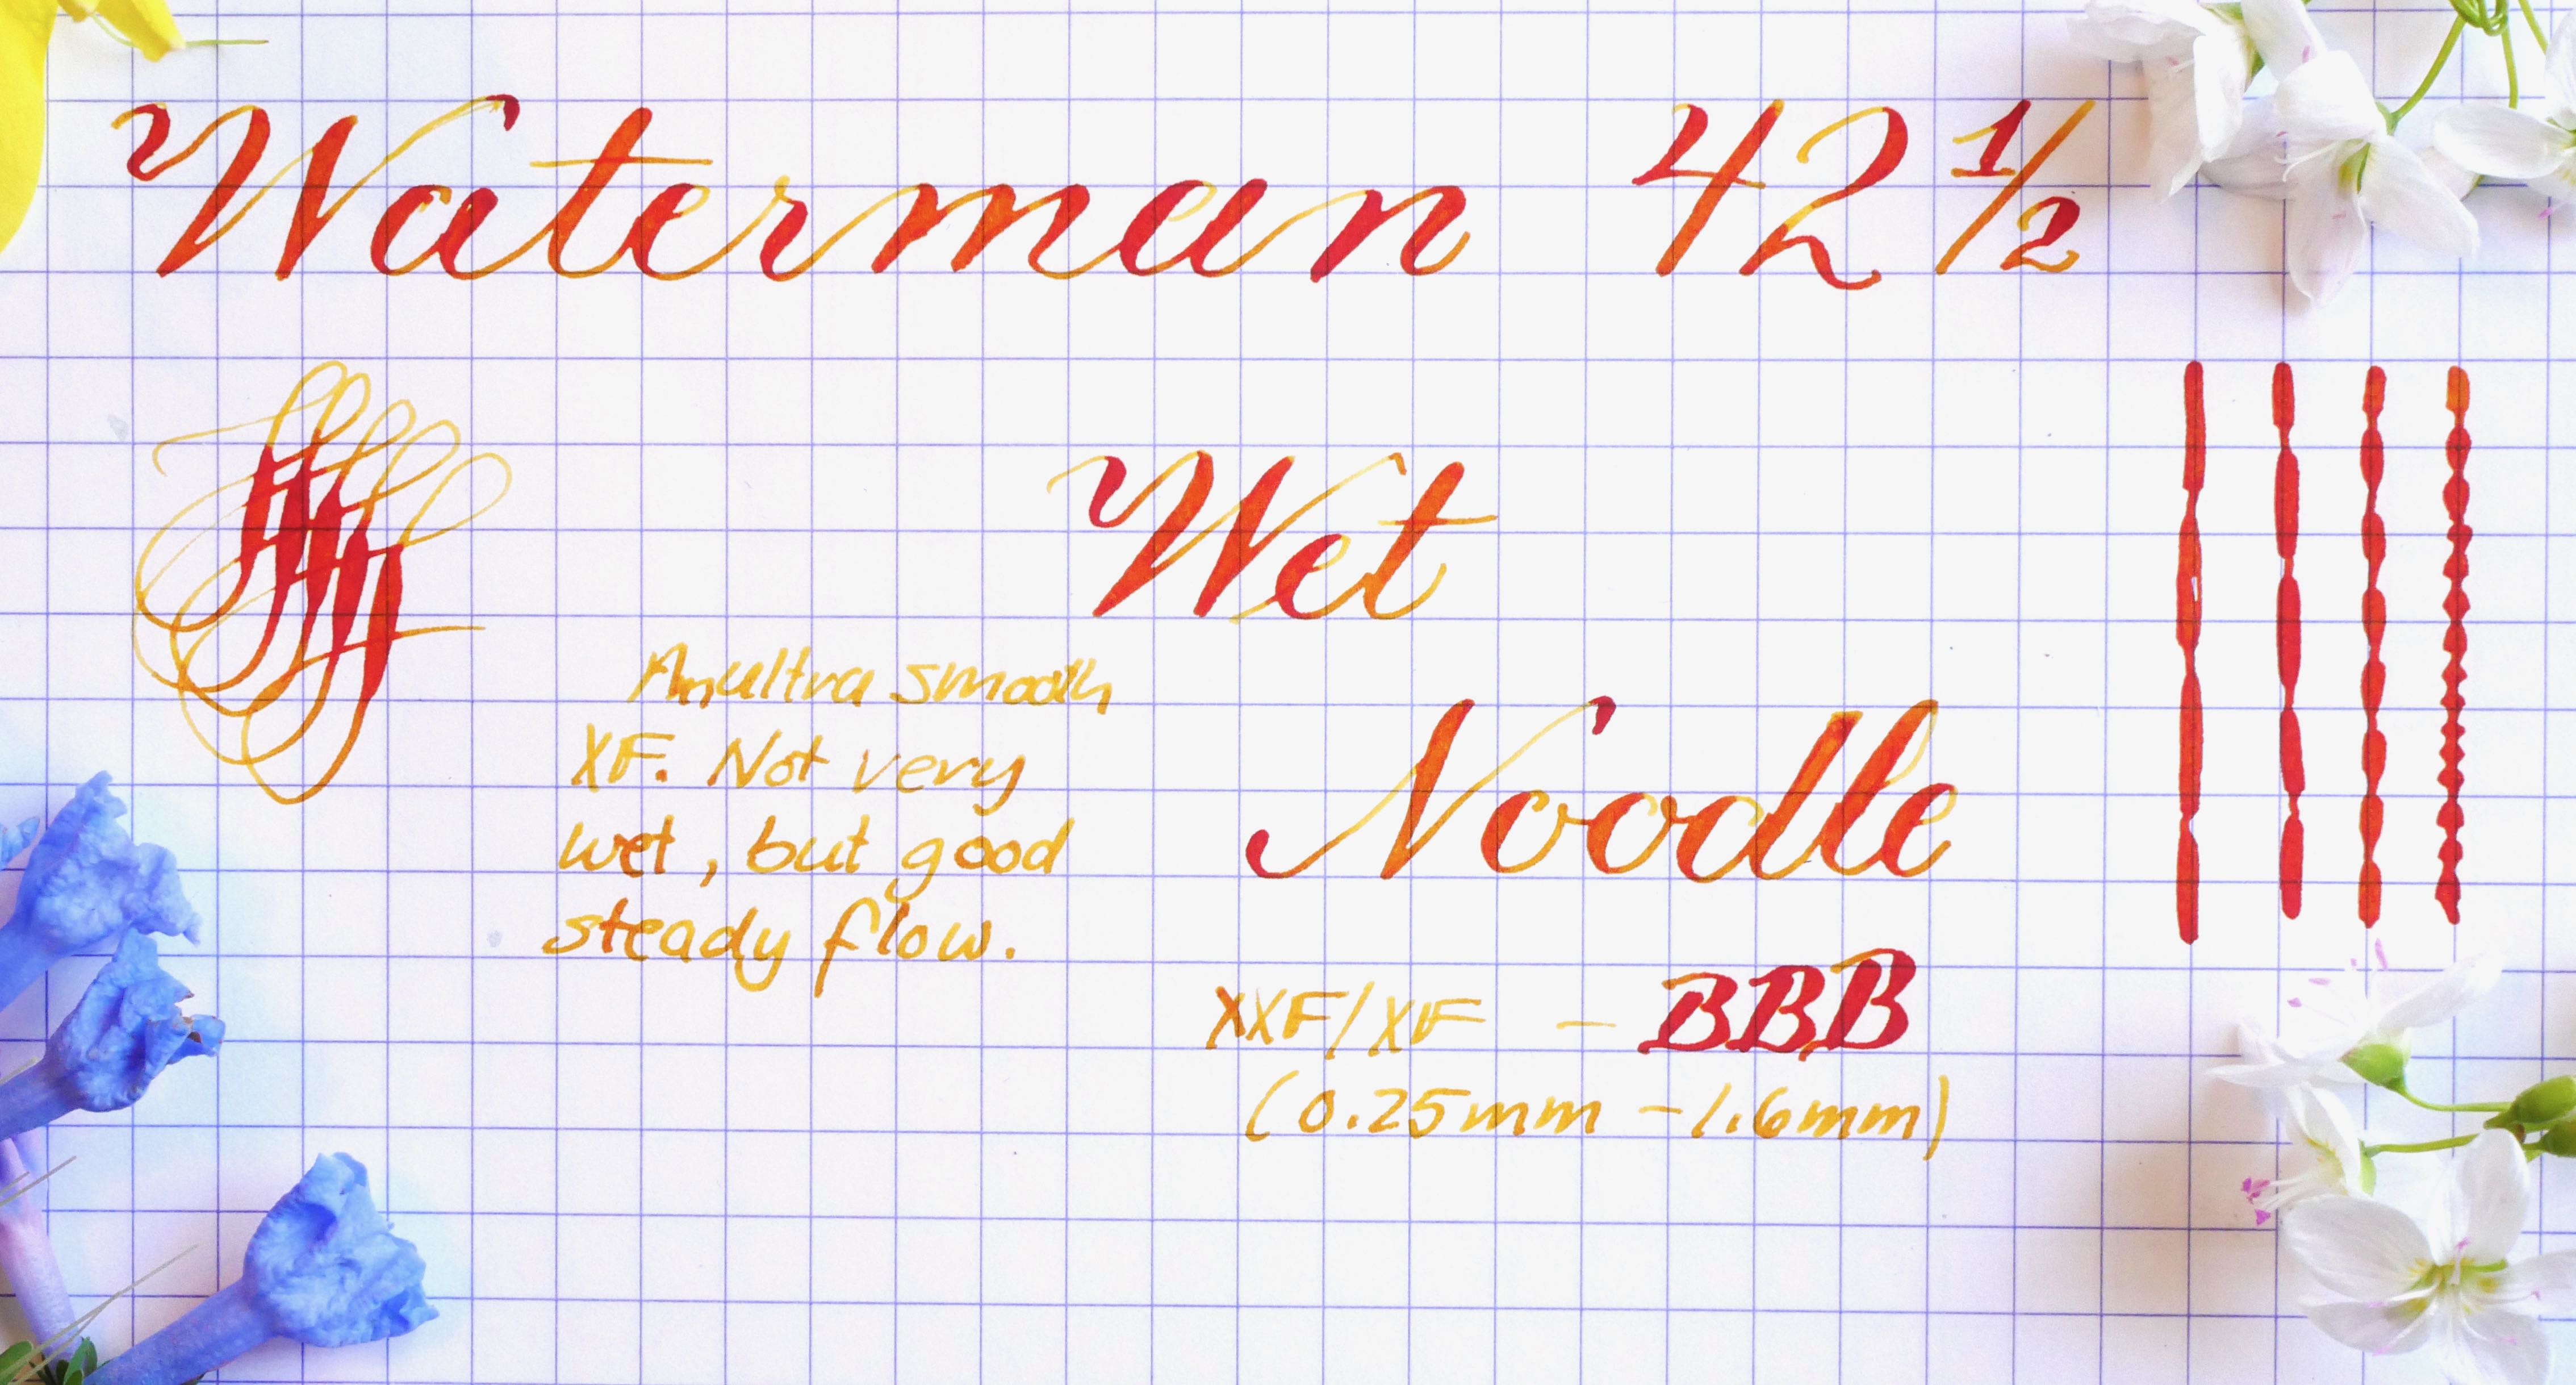 Waterman 42 1/2
Wet
Noodle
An ultra smooth
XF. Not very
wet, but good
steady flow.
XXF/XF - BBB
(0.25mm - 1.6mm)